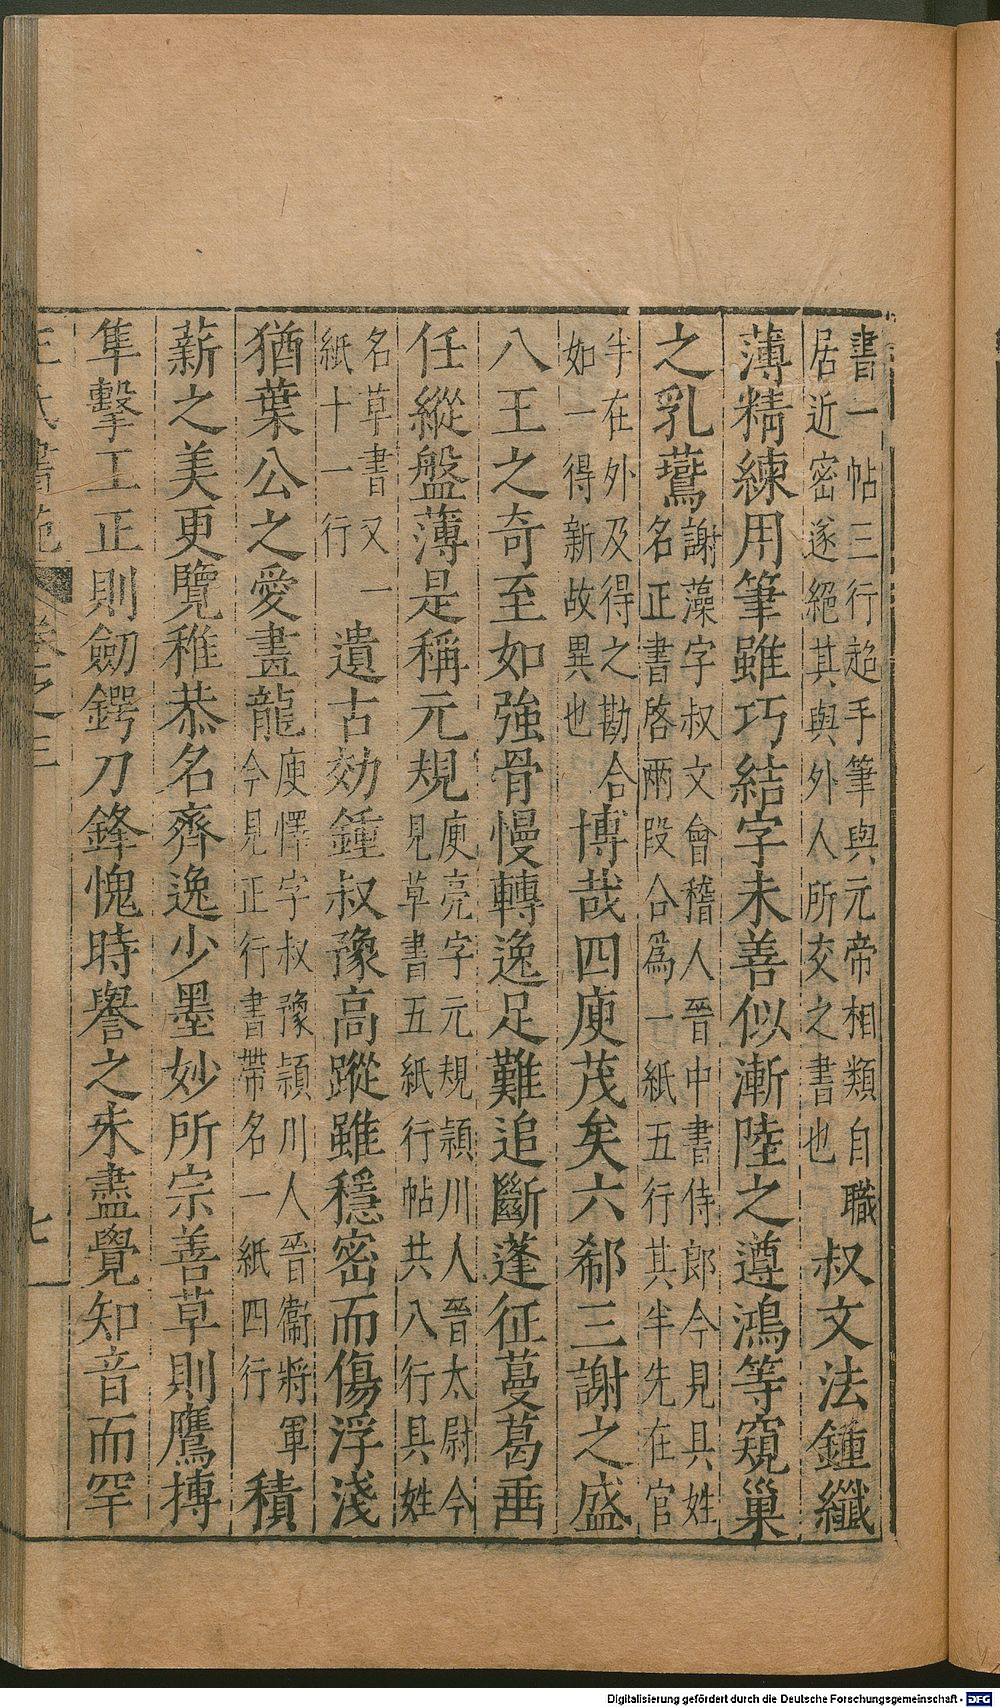 書一帖三行超手筆與元帝相類自職
居近密遂絕其與外人所交之書也
叔文法鍾纖
薄精練用筆雖巧結字未善似漸陸之遵鴻等窺巢
之乳鷰
謝藻字叔文會稽人晉中書侍郎今見具姓
名正書啓兩段合爲一紙五行其半先在官
半在外及得之勘合
如一得新故異也
博哉四庾茂矣六郗三謝之盛
八王之奇至如強骨慢轉逸足難追斷蓬征蔓葛垂
任縱盤薄是稱元規
庾亮字元規潁川人晉太尉今
見草書五紙行帖共八行具姓
名草書又一
紙十一行
遺古効鍾叔豫高蹤雖穩密而傷浮淺
猶葉公之愛畫龍
庾懌字叔豫潁川人晉衞將軍
今見正行書帶名一紙四行
積
薪之美更覽稚恭名齊逸少墨妙所宗善草則鷹摶
隼擊工正則劒鍔刀鋒愧時譽之未盡覺知音而罕
王氏書苑 卷之三 七
Digitalisierung gefördert durch die Deutsche Forschungsgemeinschaft - DFG